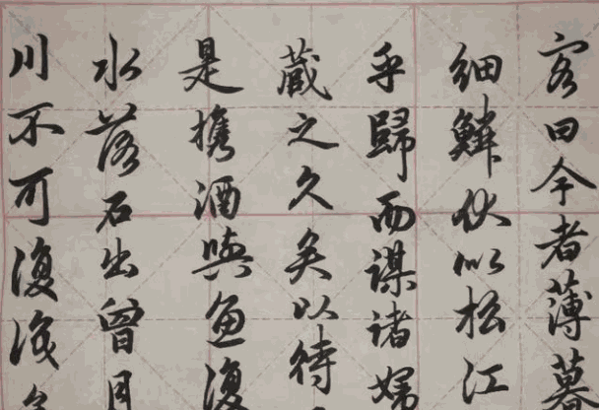 客曰今者薄暮
細鱗狀似松江
乎歸而謀諸婦
蔵之久矣以待
是攜酒與魚復
水落石出曾日
川不可復識